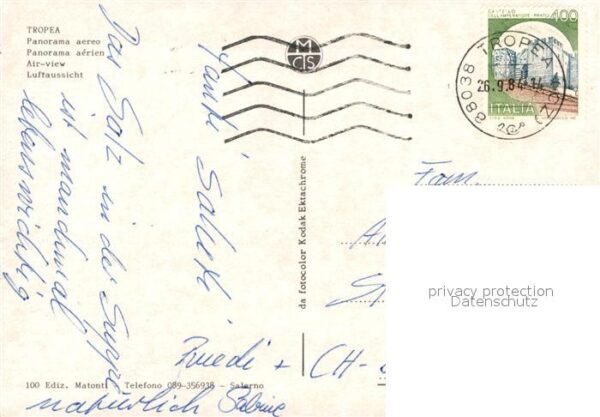 TROPEA
Panorama aereo
Panorama aérien
Air-view
Luftaussicht
Das Salz in der Suppe
ist manchmal
lebenswichtig
da fotocolor Kodak Ektachrome
100 Ediz. Matonti - Telefono 089-356938 - Salerno
Ruedi +
natürlich Sabine
MCS
CASTELLO
DELL'IMPERATORE - PRATO
400
ITALIA
88038 TROPEA (CZ)
26.9.84-14
Fam.
CH-
privacy protection
Datenschutz